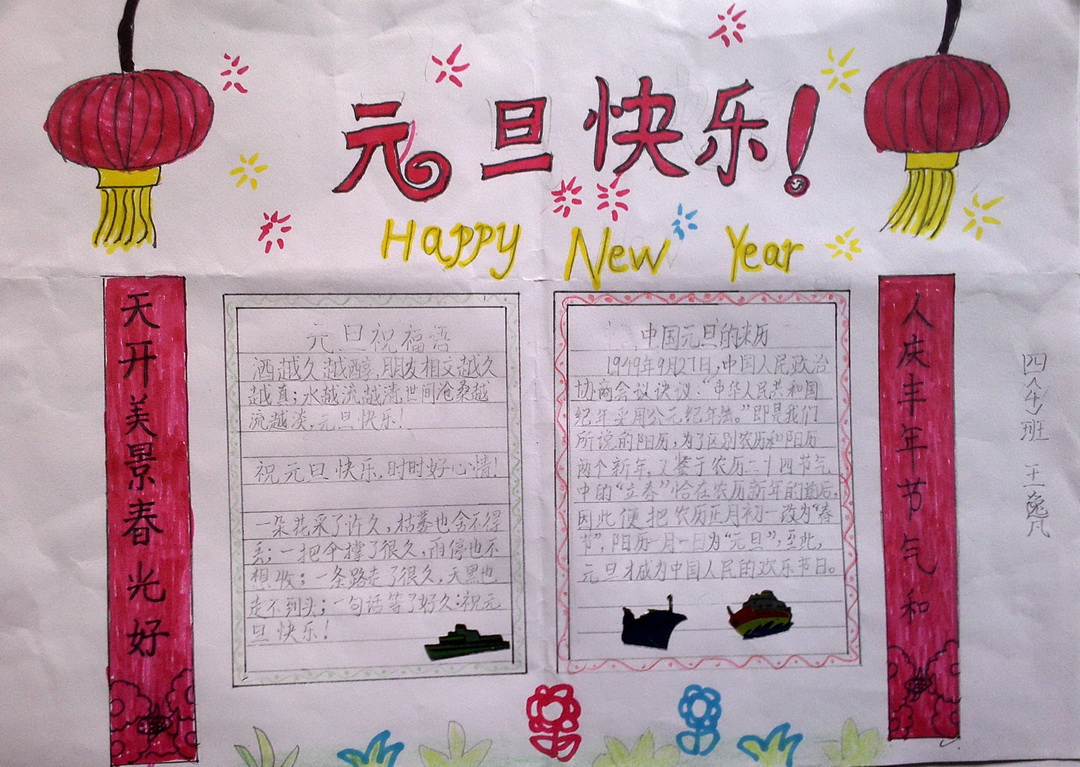 元旦快乐!
Happy New Year
天开美景春光好
元旦祝福语
酒越久越醇,朋友相交越久
越真;水越流越清,世间沧桑越
流越淡。元旦快乐!
祝元旦快乐,时时好心情!
一朵花采了许久,枯萎也舍不得
丢;一把伞撑了很久,雨停也不
想收;一条路走了很久,天黑也
走不到头;一句话等了好久:祝元
旦快乐!
中国元旦的来历
1949年9月27日,中国人民政治
协商会议决议:“中华人民共和国
纪年采用公元纪年法。”即是我们
所说的阳历,为了区别农历和阳历
两个新年,又鉴于农历二十四节气
中的“立春”恰在农历新年的前后,
因此便把农历正月初一改为“春
节”,阳历一月一日为“元旦”,至此,
元旦才成为中国人民的欢乐节日。
人庆丰年节气和
四(4)班 王